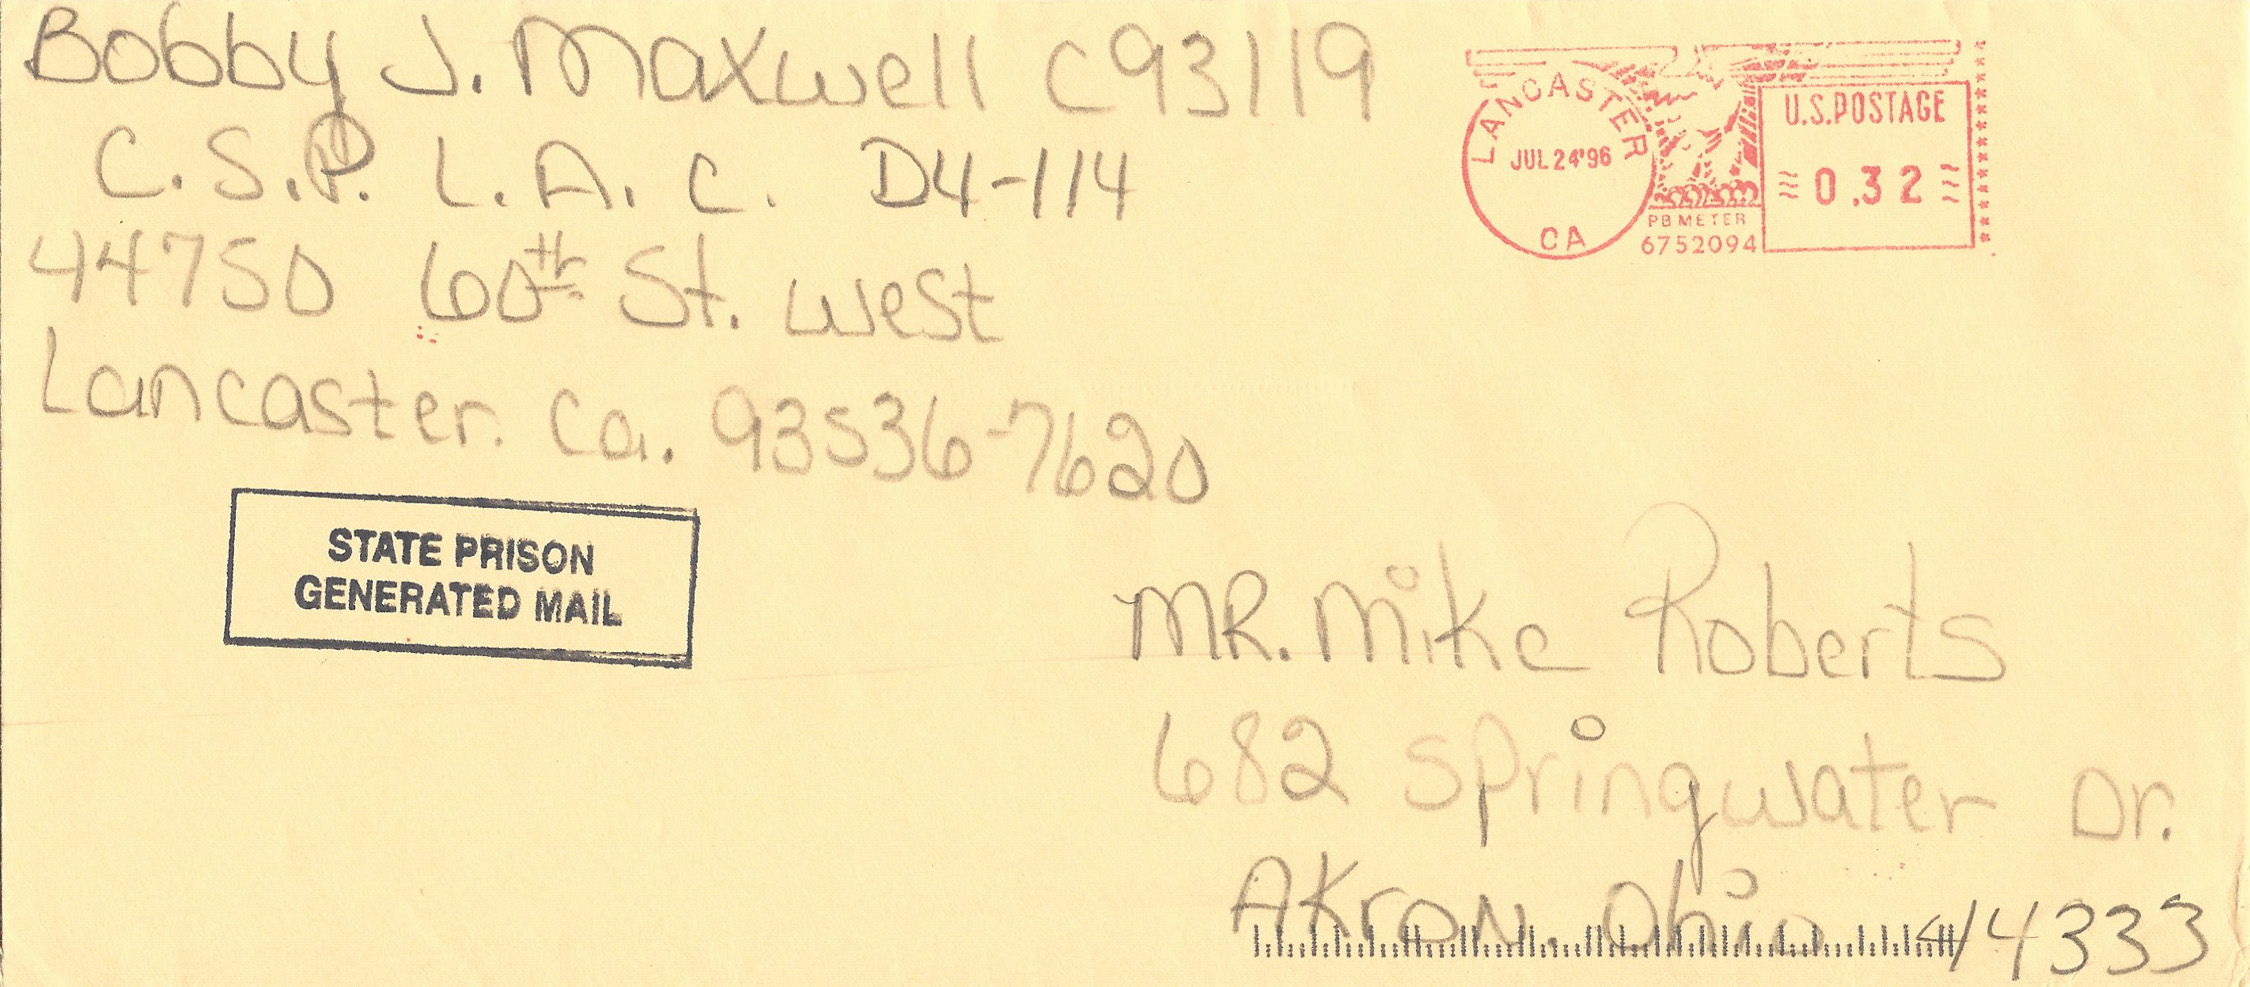 Bobby J. Maxwell C93119
C.S.P. L.A.C. D4-114
44750 60th St. West
Lancaster. Ca. 93536-7620
LANCASTER
JUL 24 '96
CA
PB METER
6752094
U.S. POSTAGE
0.32
STATE PRISON
GENERATED MAIL
MR. Mike Roberts
682 Springwater Dr.
AKron. Ohio 44333